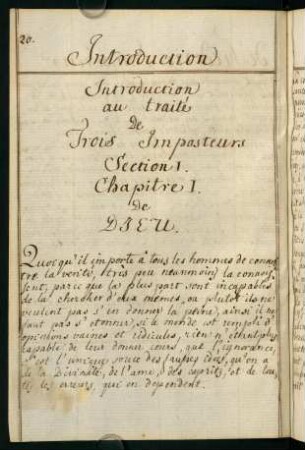 20.
Introduction
Introduction
au traité
de
Trois Imposteurs
Section 1.
Chapitre I.
de
DIEU.
Quoiqu'il importe à tous les hommes de conoi
tre la verité, très peu neanmoins la conois
sent, parce que la plus part sont incapables
de la chercher d'eux memes, ou plutot ils ne
veulent pas s'en donner la peine, ainsi il ne
faut pas s'etonner, si le monde est rempli d'
opinions vaines et ridicules, rien n'etant plus
capable de leur donner cours, que l'ignorance,
c'est l'unique source des fausses idées, qu'on a
de la Divinité, de l'ame, des esprits, et de tou
tes les erreurs, qui en dependent.